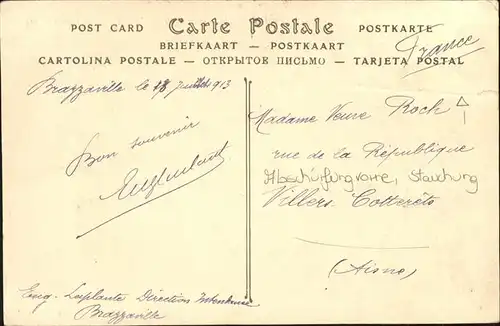 POST CARD Carte Postale POSTKARTE
BRIEFKAART — POSTKAART
CARTOLINA POSTALE — ОТКРЫТОЕ ПИСЬМО — TARJETA POSTAL
France
Brazzaville le 18 Juillet 1913
Bon souvenir
Madame Veuve Roch
rue de la République
Abschürfung vorne, Stauchung
Villers-Cotterêts
(Aisne)
Eug. Laplante Direction Intendance
Brazzaville